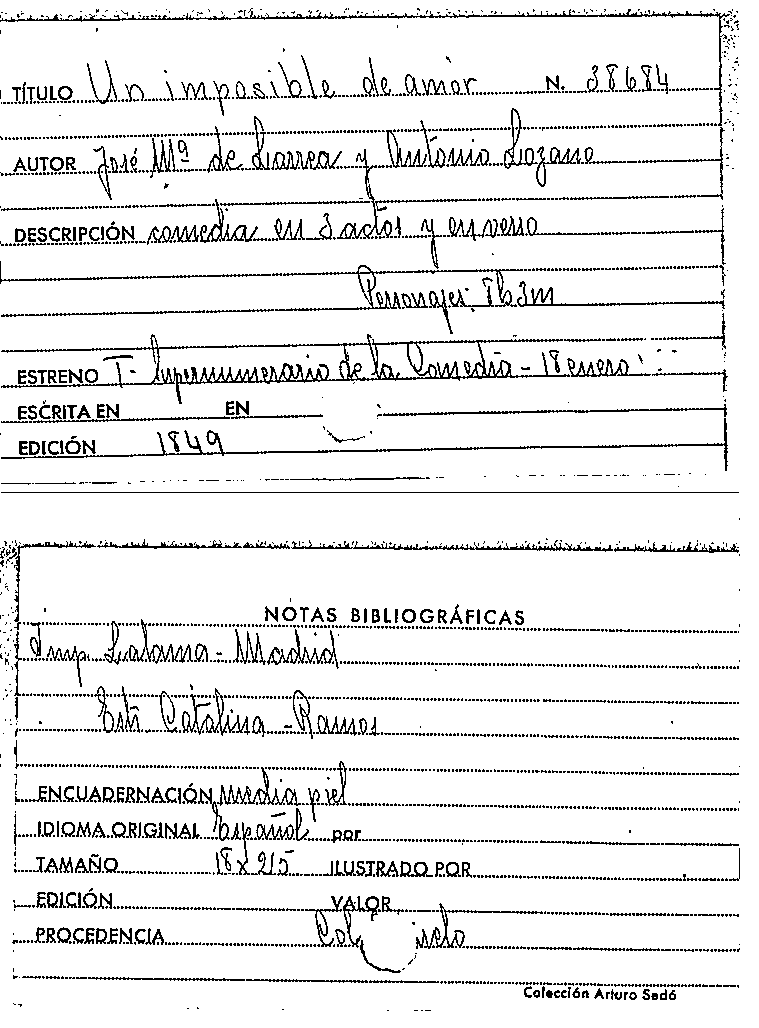 TÍTULO Un imposible de amor N. 38684
AUTOR José Mª de Larrea y Antonio Lozano
DESCRIPCIÓN comedia en 3 actos y en verso
Personajes: 8h 3m
ESTRENO T- Supernumerario de la Comedia - 18 enero
ESCRITA EN EN
EDICIÓN 1849
NOTAS BIBLIOGRÁFICAS
Imp. Lalama - Madrid
Catalina - Ramos
ENCUADERNACIÓN media piel
IDIOMA ORIGINAL Español por
TAMAÑO 18 x 21'5 ILUSTRADO POR
EDICIÓN VALOR
PROCEDENCIA
Colección Arturo Sedó